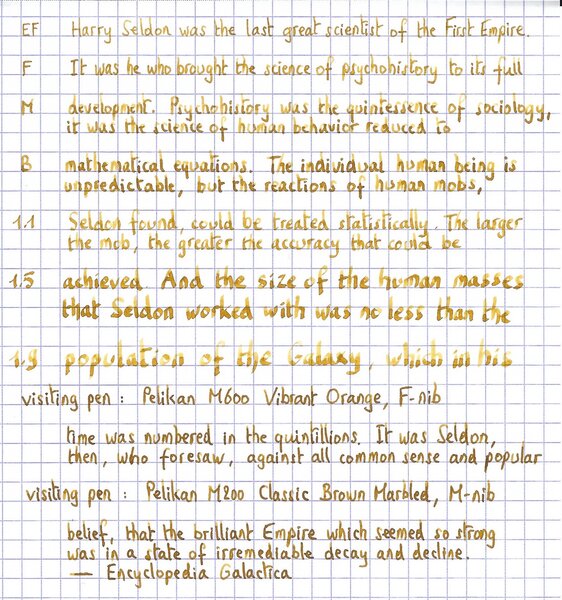 EF Harry Seldon was the last great scientist of the First Empire.
F It was he who brought the science of psychohistory to its full
M development. Psychohistory was the quintessence of sociology,
it was the science of human behavior reduced to
B mathematical equations. The individual human being is
unpredictable, but the reactions of human mobs,
1.1 Seldon found, could be treated statistically. The larger
the mob, the greater the accuracy that could be
1.5 achieved. And the size of the human masses
that Seldon worked with was no less than the
1.9 population of the Galaxy, which in his
visiting pen: Pelikan M600 Vibrant Orange, F-nib
time was numbered in the quintillions. It was Seldon,
then, who foresaw, against all common sense and popular
visiting pen: Pelikan M200 Classic Brown Marbled, M-nib
belief, that the brilliant Empire which seemed so strong
was in a state of irremediable decay and decline.
— Encyclopedia Galactica